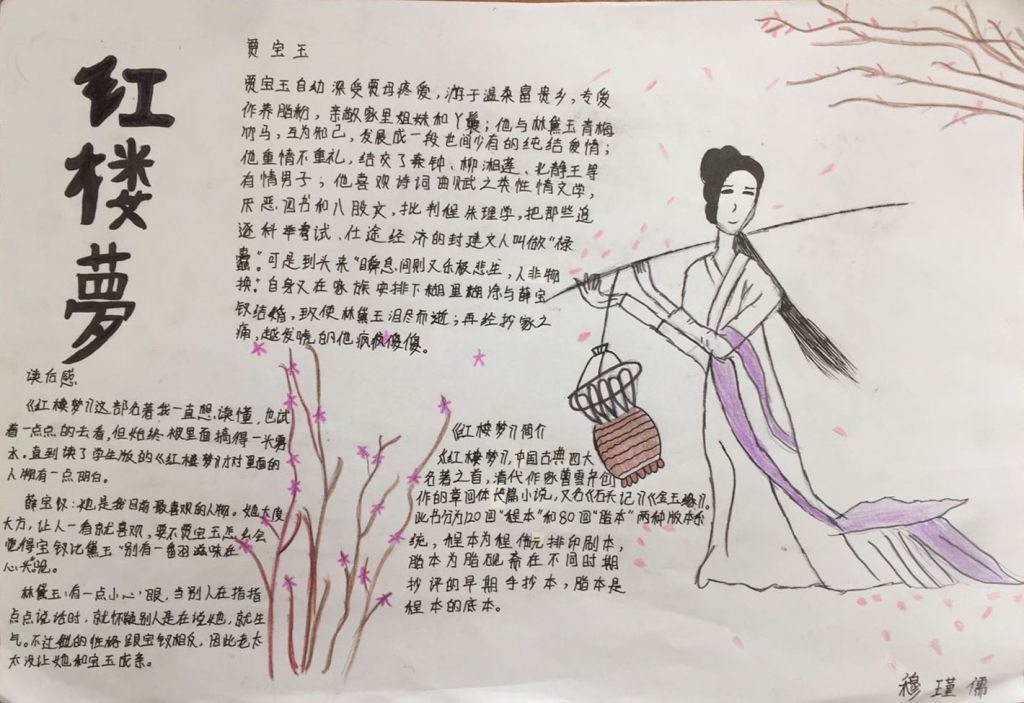 红楼夢
贾宝玉
贾宝玉自幼深受贾母疼爱，游于温柔富贵乡，专爱
作养脂粉，亲敬家里姐妹和丫鬟；他与林黛玉青梅
竹马，互为知己，发展成一段世间少有的纯结爱情；
他重情不重礼，结交了秦钟、柳湘莲、北静王等
有情男子；他喜欢诗词曲赋之类性情文学，
厌恶四书和八股文，批判程朱理学，把那些追
逐科举考试、仕途经济的封建文人叫做“禄
蠹”。可是到头来“瞬息间则又乐极悲生，人非物
换。”自身又在家族安排下糊里糊涂与薛宝
钗结婚，致使林黛玉泪尽而逝；再经抄家之
痛，越发唬的他疯疯傻傻。
读后感
《红楼梦》这部名著我一直想读懂，也试
着一点点的去看，但始终被里面搞得一头雾
水。直到读了学生版的《红楼梦》才对里面的
人物有一点明白。
薛宝钗：她是我目前最喜欢的人物。她大度
大方，让人一看就喜欢，要不贾宝玉怎么会
觉得宝钗比黛玉“别有一番滋味在
心头呢。
林黛玉：有一点小心眼，当别人在指指
点点说话时，就怀疑别人是在说她，就生
气。不过她的性格跟宝钗相反，因此老太
太没让她和宝玉成亲。
《红楼梦》简介
《红楼梦》，中国古典四大
名著之首，清代作家曹雪芹创
作的章回体长篇小说，又名《石头记》《金玉缘》。
此书分为120回“程本”和80回“脂本”两种版本系
统，程本为程伟元排印刷本，
脂本为脂砚斋在不同时期
抄评的早期手抄本，脂本是
程本的底本。
穆瑾儒